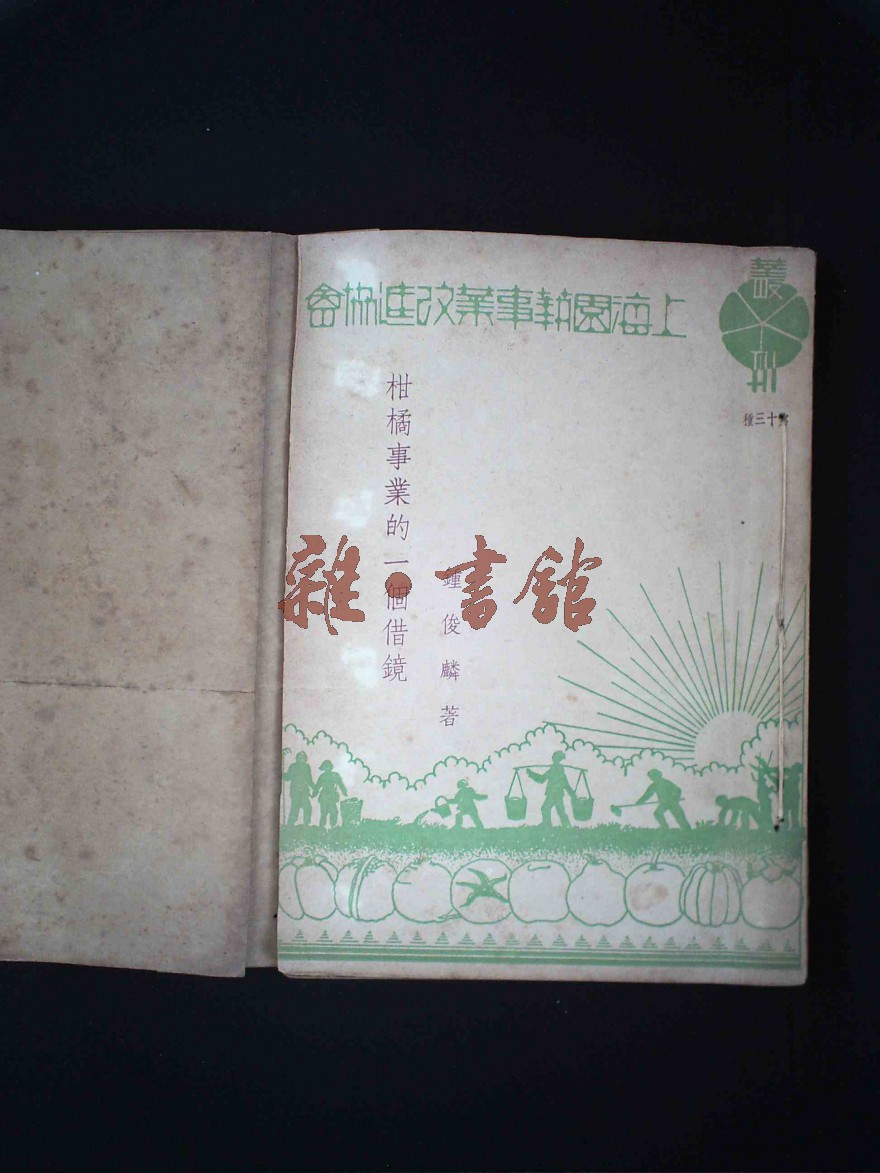 上海園藝事業改進協會
叢刊
第十三種
柑橘事業的一個借鏡
鍾俊麟 著
雜·書館